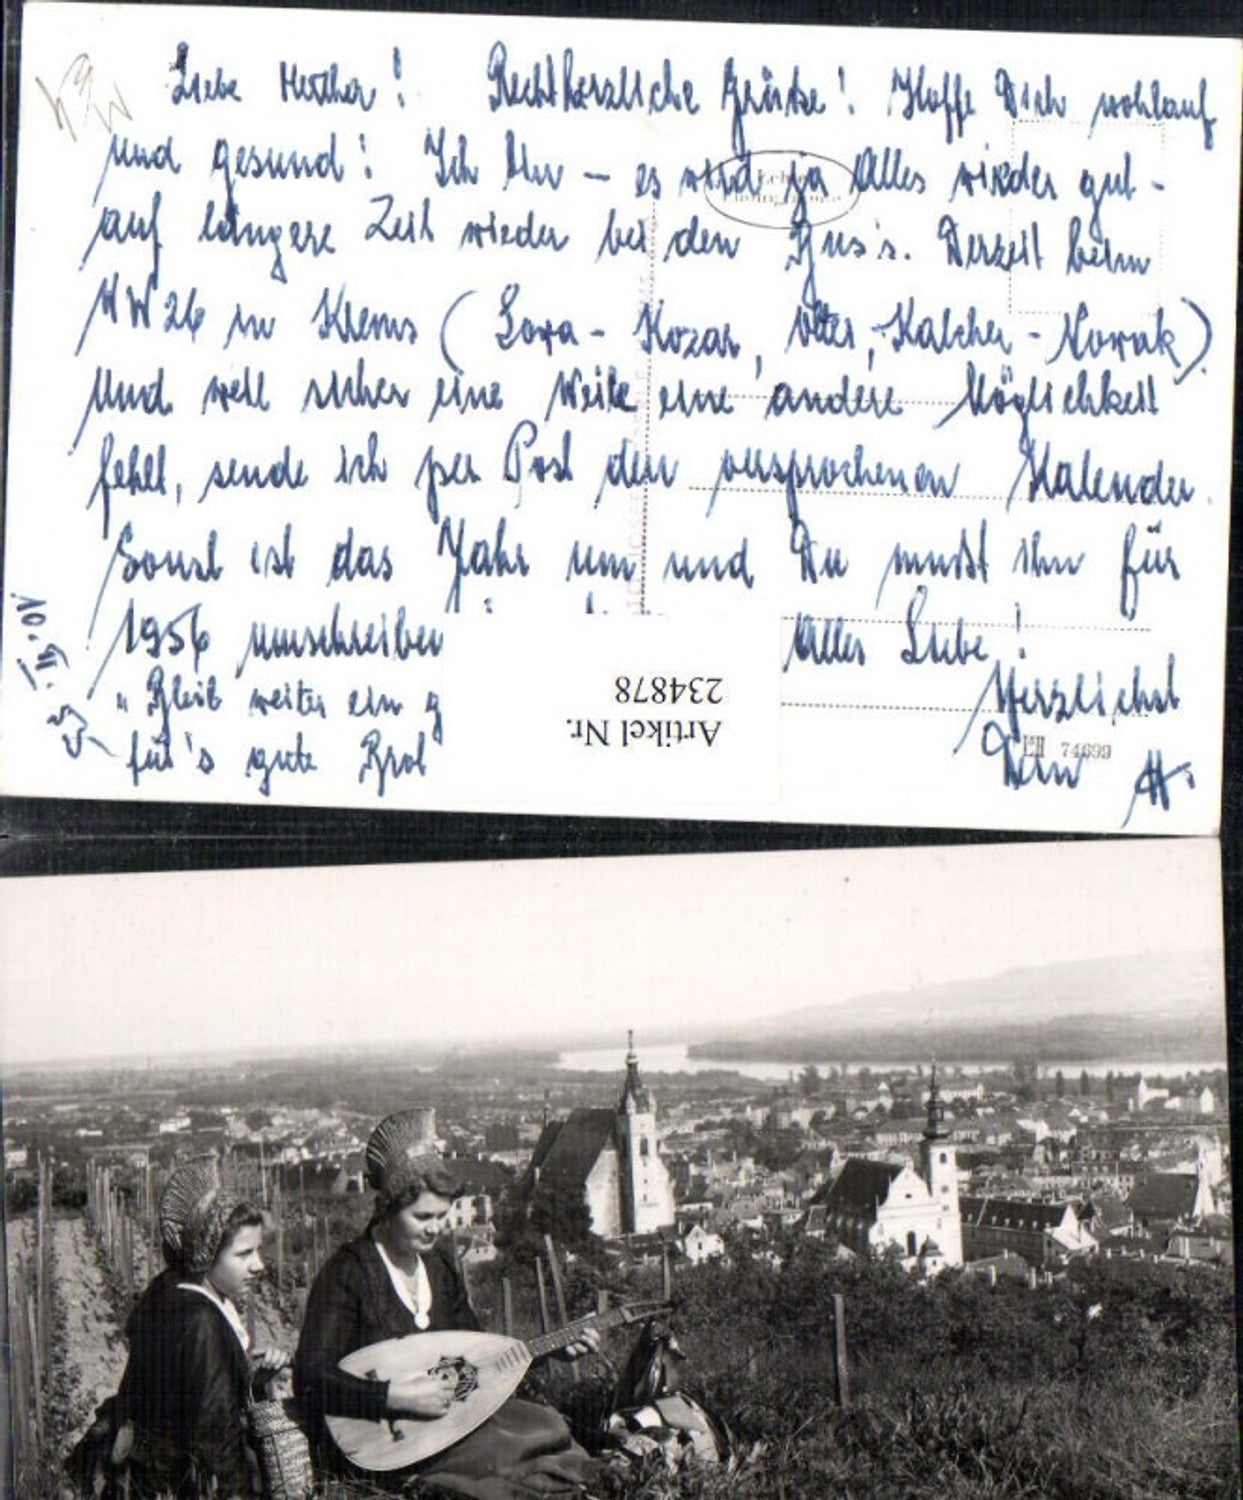 Liebe Hertha! Recht herzliche Grüsse! Hoffe Dich wohlauf
und gesund! Ich bin - es wird ja Alles wieder gut -
auf längere Zeit wieder bei den Derzeit beim
in Krems ( - Kozar, Kalcher - Nowak)
Und weil sicher eine Weile eine andere Möglichkeit
fehlt, sende ich per Post den versprochenen Kalender.
Sonst ist das Jahr um und Du mußt ihn für
1956 umschreiben Alles Liebe!
"Bleib weiter ein g
für's gute Brot
Herzlichst
Dein H.
Echte
Photographie
74699
Artikel Nr.
234878